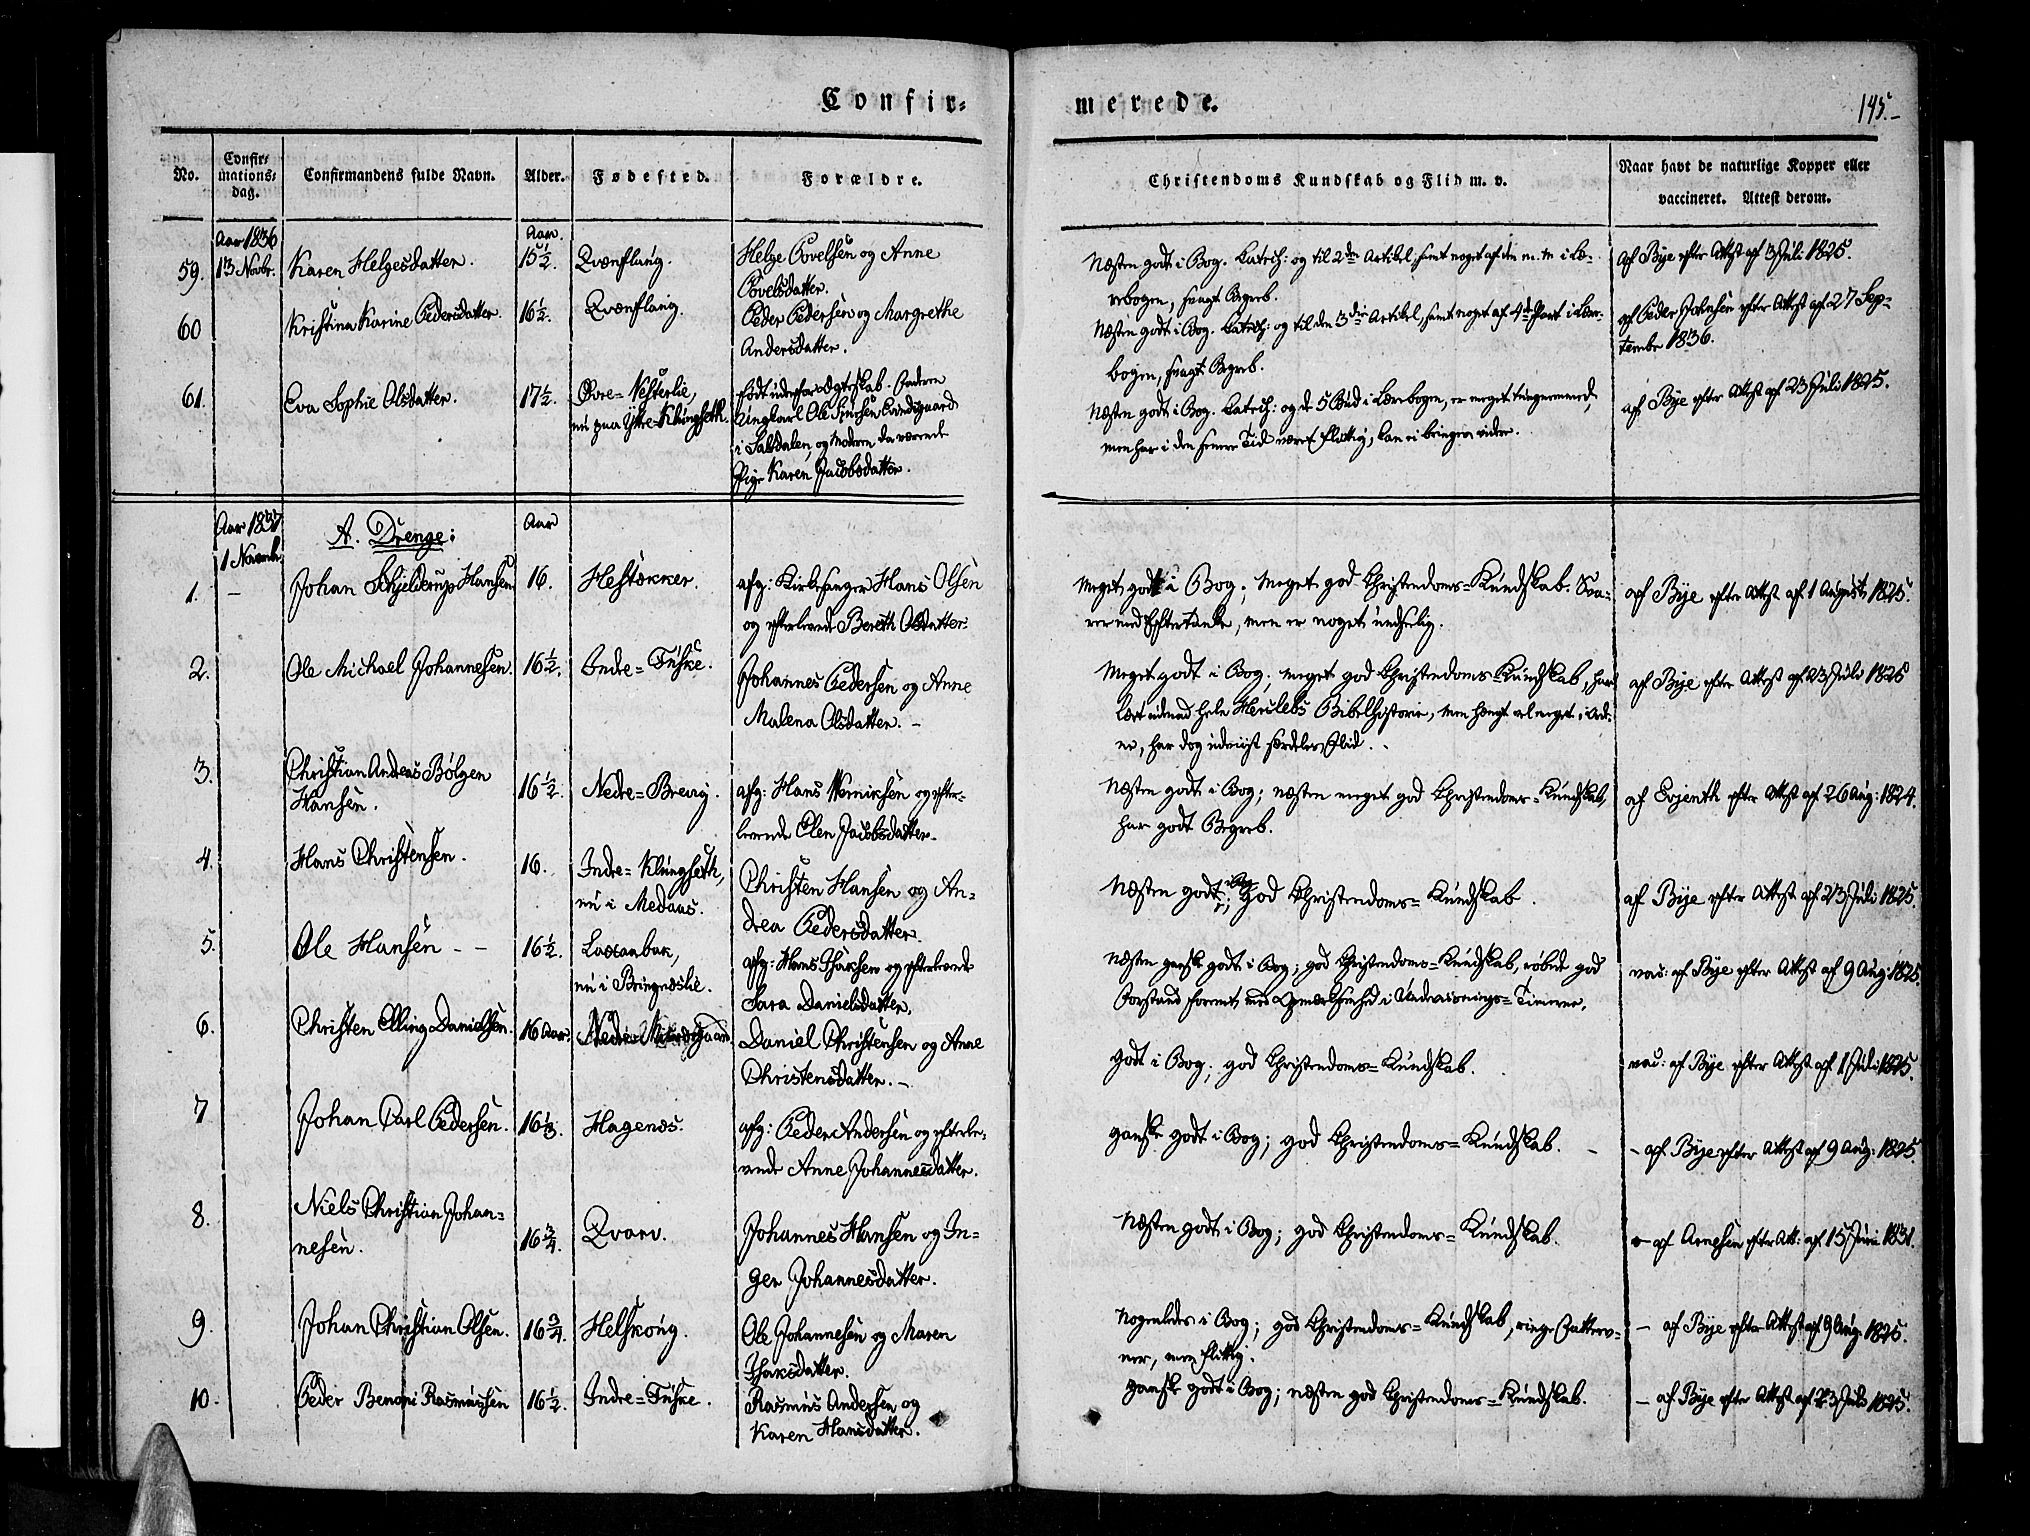 Confir=
merede.
145.
No.
Confir=
mations=
dag.
Confirmandens fulde Navn.
Alder.
Fødested.
Forældre.
Christendoms Kundskab og Flid m. v.
Naar havt de naturlige Kopper eller
vaccineret. Attest derom.
Aar 1836
Aar.
59. 13 Novbr. Karen Helgesdatter. 15½. Qvænflaug. Helge Povelsen og Anne
Povelsdatter.
Næsten godt i Bog. Catech: og til 2den Artikel, samt noget af den
rebogen, svagt Begreb.
af Bye efter Attest af 3 Juli 1825.
60 Kristina Karine Pedersdatter. 16½. Qvænflaug. Peder Pedersen og Margrethe
Andersdatter.
Næsten godt i Bog. Catech: og til den 3die Artikel, samt noget af 4de Part i Lære-
bogen, svagt Begreb.
af Peder Johnsen efter Attest af 27 Sep-
tember 1836.
61. Eva Sophie Olsdatter. 17½. Øvre= Nesterlie,
nu paa Ytre=Klungseth.
født udenfor Ægteskab. Faderen
Ungkarl Ole
i Saltdalen, og Moderen da værende
Pige Karen Jacobsdatter.
Næsten godt i Bog. Catech: og de 5 Bud i Lærebogen, er meget tungnemmed,
men har i den senere Tid været flittig, kan ei bringes videre.
af Bye efter Attest af 23 Juli 1825.
Aar 1837
1 Novemb.
A. Drenge:
Aar
1. – Johan Schjelderup Hansen 16. Hestækker. afg: Kirkesanger Hans Olsen
og efterlevende Bereth Olsdatter.
Meget godt i Bog; meget god Christendoms=Kundskab. Sva-
rer med Eftertanke, men er noget undselig.
af Bye efter Attest af 1 August 1825.
2. Ole Michael Johannesen. 16½. Indre=Fuske. Johannes Pedersen og Anne
Malena Olsdatter. –
Meget godt i Bog; meget god Christendoms=Kundskab, har
lært udenad hele Herslebs Bibelhistorie, men hængt vel meget i Orde-
ne, har dog udviist særdeles Flid.
af Bye efter Attest af 23 Juli 1825
3. Christian Andreas Bølgen
Hansen.
16½. Nedre=Brevig. afg: Hans Henriksen og efter-
levende Elen Jacobsdatter.
Næsten godt i Bog; næsten meget god Christendoms=Kundskab,
har godt Begreb.
af Evjenth efter Attest af 26 Aug: 1824.
4. Hans Christensen. 16. Indre=Klungseth,
nu i Medaas.
Christen Hansen og An-
drea Pedersdatter.
Næsten godt i Bog; god Christendoms=Kundskab.
af Bye efter Attest af 23 Juli 1825.
5. Ole Hansen – – 16½. Laxanbak,
nu i Bringneslie.
afg: Hans Isaksen og efterlevende
Sara Danielsdatter.
Næsten ganske godt i Bog; god Christendoms=Kundskab, røbede god
Forstand forenet med Opmærksomhed i Underviisnings=Timerne.
vac: af Bye efter Attest af 9 Aug: 1825.
6. Christen Elling Danielsen. 16 Aar. Daniel Christensen og Anne
Christensdatter. –
Godt i Bog; god Christendoms=Kundskab.
vac: af Bye efter Attest af 1 Juli 1825.
7 Johan Carl Pedersen. 16⅓. Hagenes. afg: Peder Andersen og efterle-
vende Anne Johannesdatter.
Ganske godt i Bog; god Christendoms=Kundskab. –
– af Bye efter Attest af 9 Aug: 1825.
8. Niels Christian Johan-
nesen.
16¾. Qvarv. Johannes Hansen og In-
ger Johannesdatter.
Næsten godt i Bog; god Christendoms=Kundskab.
– af Arnesen efter Att: af 15 Juni 1831.
9. Johan Christian Olsen. 16¾. Helskoug. Ole Johannesen og Maren
Isaksdatter.
Nogenledes i Bog; god Christendoms=Kundskab, ringe Fatteev-
ner, men flittig.
– af Bye efter Attest af 9 Aug: 1825.
10. Peder Benoni Rasmussen 16½. Indre=Fuske. Rasmus Andersen og
Karen Hansdatter.
Ganske godt i Bog; næsten god Christendoms=Kundskab.
– af Bye efter Attest af 23 Juli 1825.